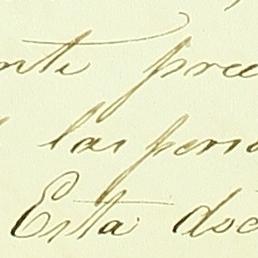 nte pre
las pers
Esta doc